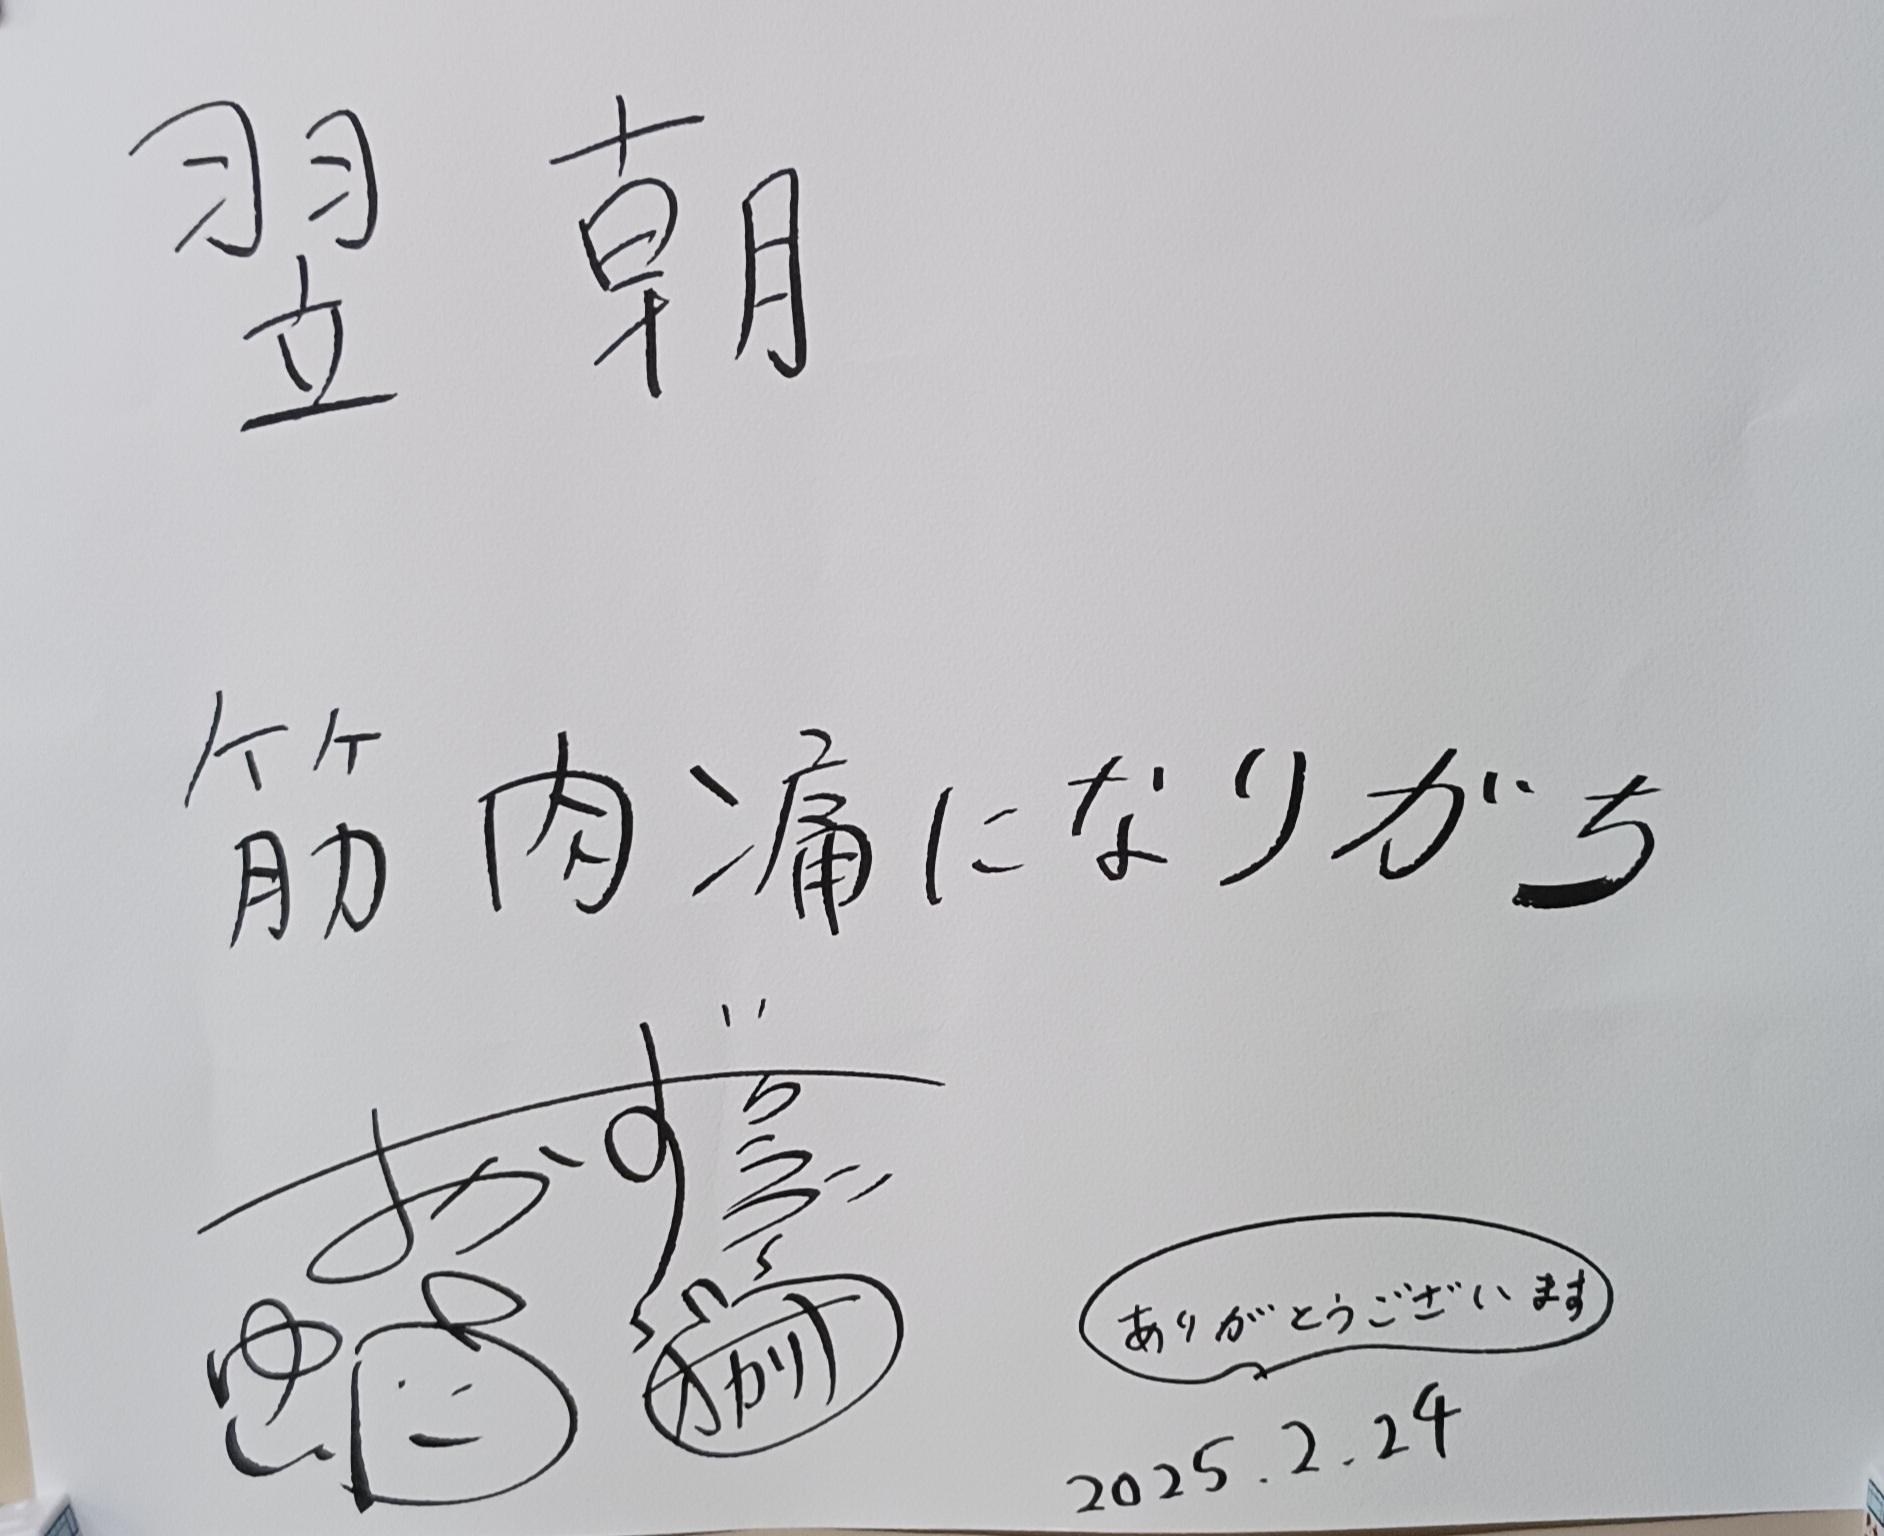 翌朝
筋肉痛になりがち
おかず
ゆ
オカリナ
ありがとうございます
2025.2.24